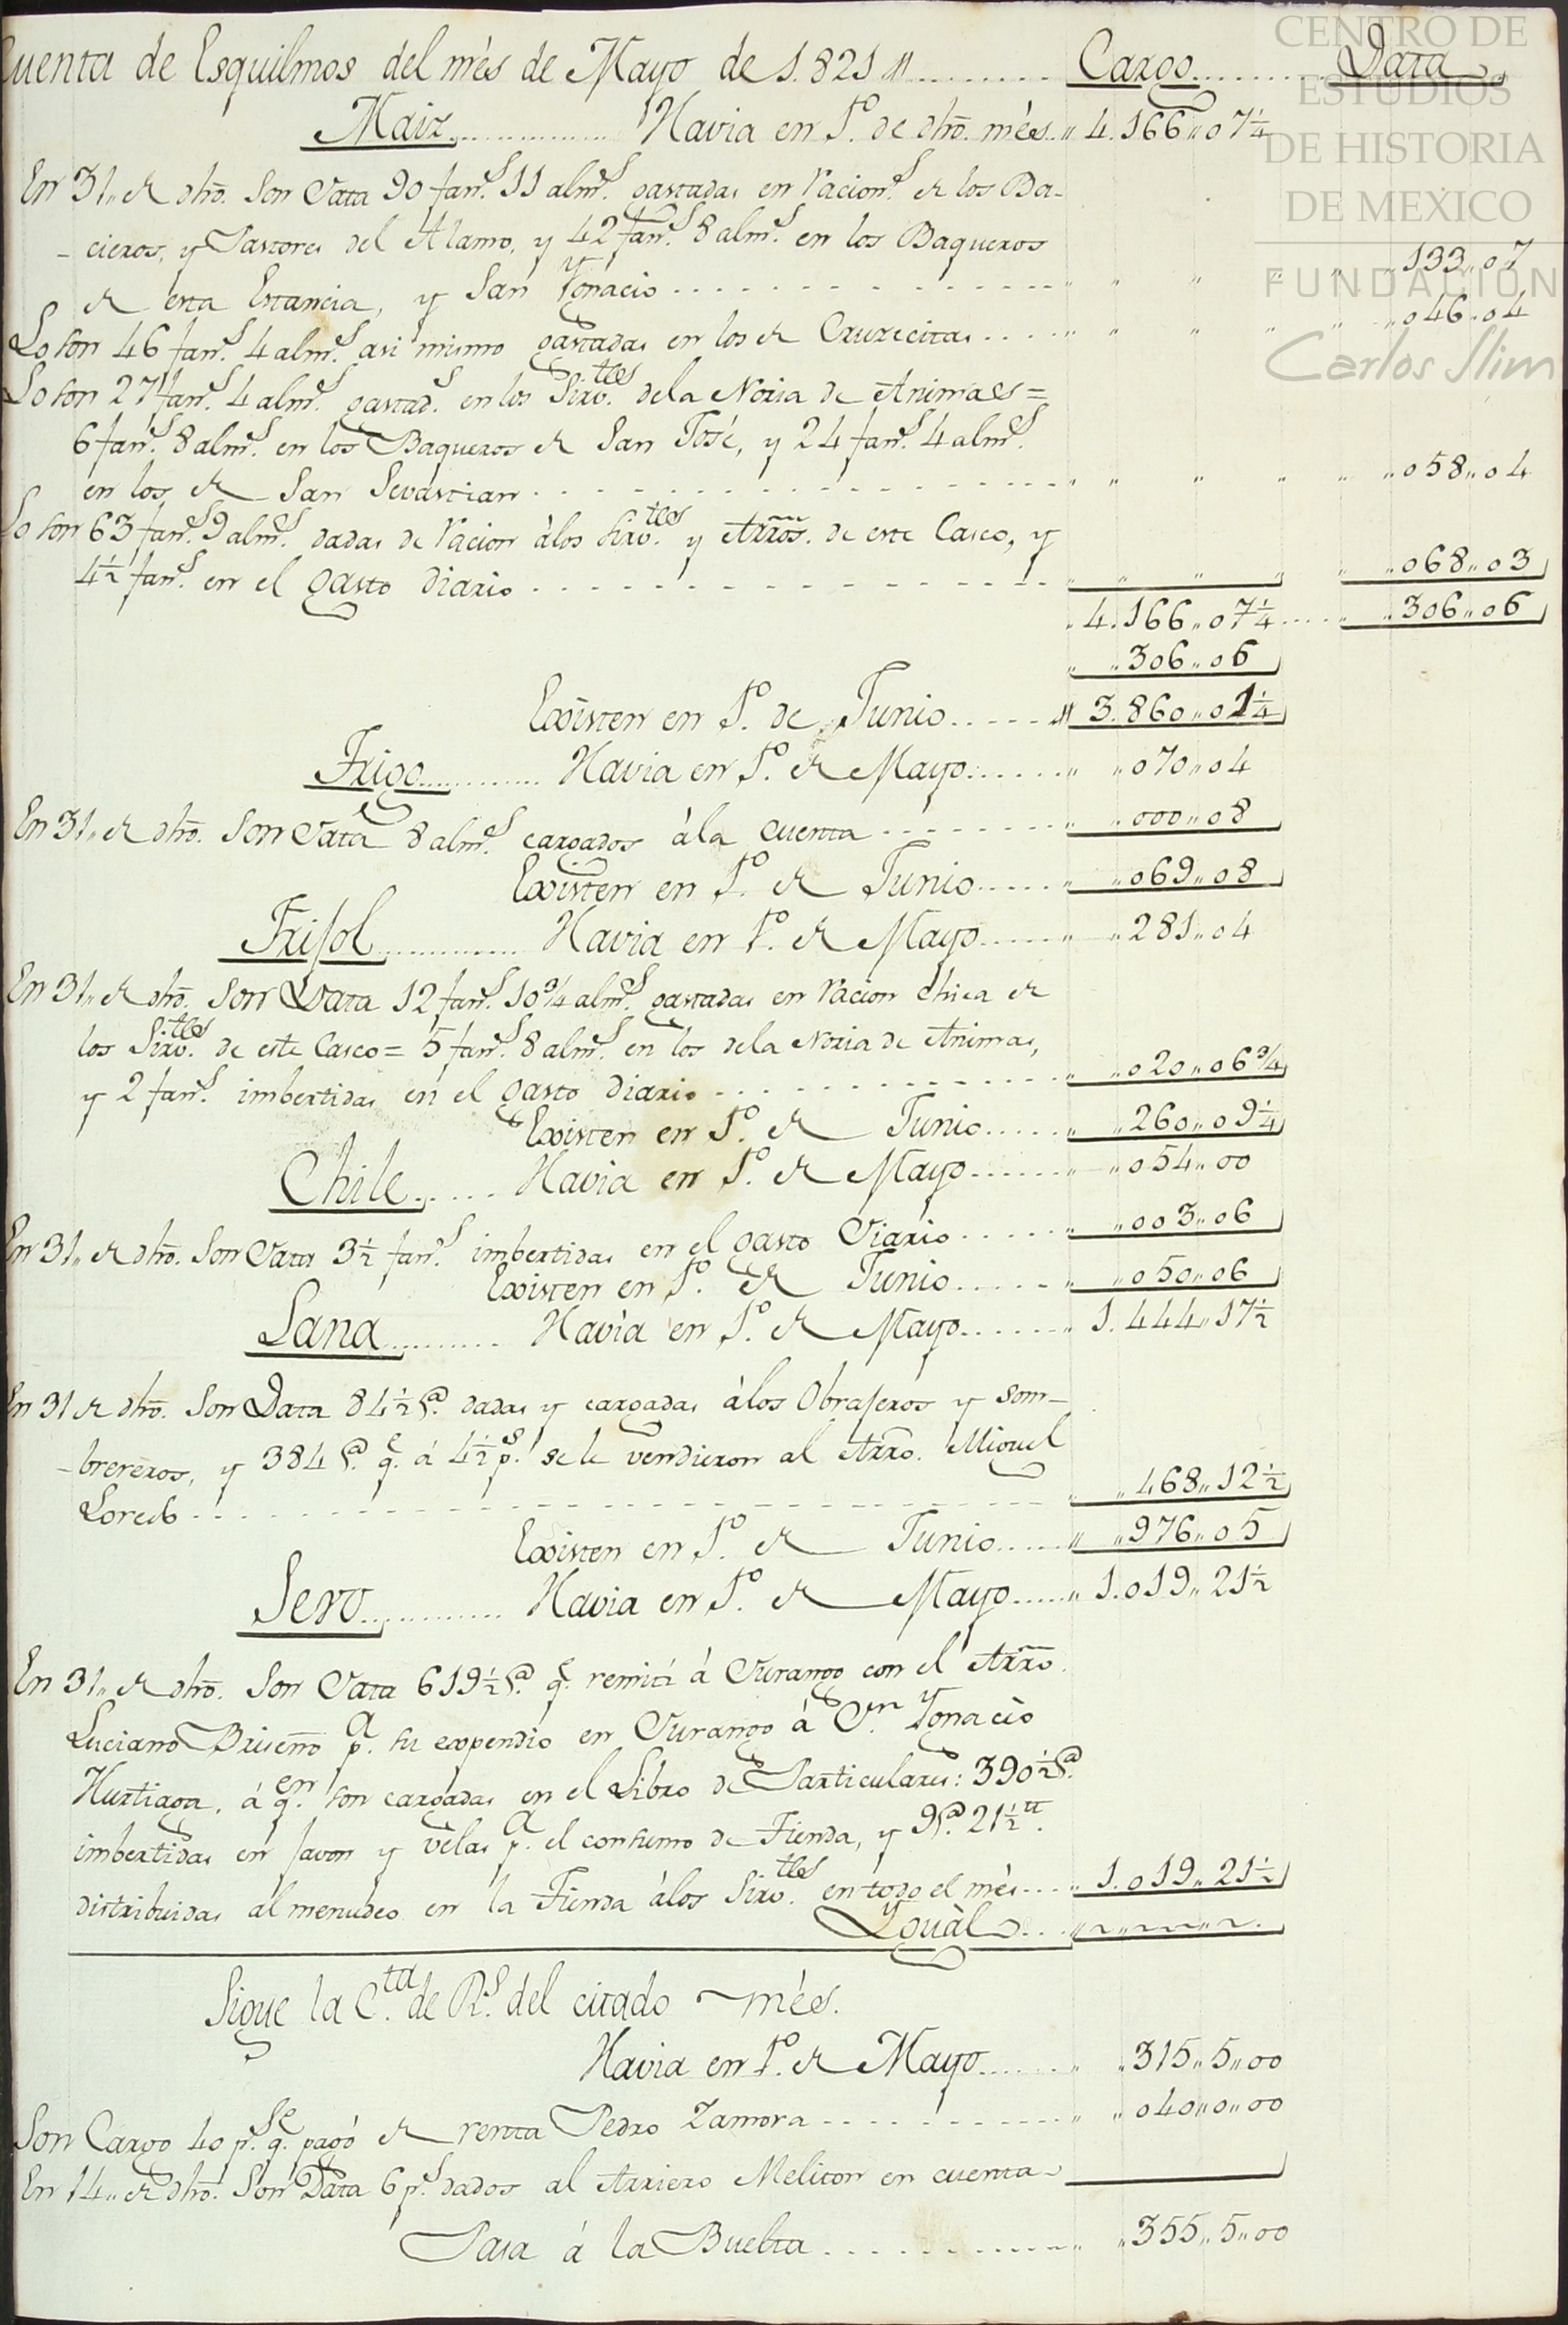 CENTRO DE
ESTUDIOS
DE HISTORIA
DE MEXICO
FUNDACIÓN
Carlos Slim
Cuenta de Esquilmos del més de Mayo de 1.821 „ Cargo Data
Maiz Havia en 1º de dhō. més „ 4.166„07¼
En 31„ de dhō. Son Data 90 fanˢ. 11 almˢ. gastadas en racionˢ. de los Ba-
-cieros, y Pastores del Alamo, y 42 fanˢ. 8 almˢ. en los Baqueros
de esta Estancia, y San Ygnacio „ 133„07
Lo son 46 fanˢ. 4 almˢ. asi mismo gastadas en los de Cruzecitas „ 046„04
Lo son 27 fanˢ. 4 almˢ. gastadˢ. en los Sirvᵗᵉˢ. dela Noria de Animas =
6 fanˢ. 8 almˢ. en los Baqueros de San José, y 24 fanˢ. 4 almˢ.
en los de San Sevastian „ 058„04
Lo son 63 fanˢ. 9 almˢ. dadas de racion álos Sirvᵗᵉˢ. y Arrōs. de este Casco, y
4½ fanˢ. en el gasto diario „ 068„03
4.166„07¼ „ 306„06
„ 306„06
Existen en 1º. de Junio „ 3.860„01¼
Trigo Havia en 1º. de Mayo „ 070„04
En 31„ de dhō. Son Data 8 almˢ. cargados ála cuenta „ 000„08
Existen en 1º. de Junio „ 069„08
Frisol Havia en 1º. de Mayo „ 281„04
En 31„ de dhō. Son Data 12 fanˢ. 10¾ almˢ. gastadas en racion chica de
los Sirvᵗᵉˢ. de este Casco = 5 fanˢ. 8 almˢ. en los dela Noria de Animas,
y 2 fanˢ. imbertidas en el gasto diario „ 020„06¾
Existen en 1º. de Junio „ 260„09¼
Chile Havia en 1º. de Mayo „ 054„00
En 31„ de dhō. Son Data 3½ fanˢ. imbertidas en el gasto Diario „ 003„06
Existen en 1º. de Junio „ 050„06
Lana Havia en 1º. de Mayo 1.444„17½
En 31 de dhō. Son Data 84½ @. dadas y cargadas álos Obrajeros y som-
-brereros, y 384 @. qᵉ. á 4½ pˢ. se le vendieron al Arrō. Miguel
Loredo „ 468„12½
Existen en 1º. de Junio „ 976„05
Sevo Havia en 1º. de Mayo „ 1.019„21½
En 31„ de dhō. Son Data 619½ @. qᵉ. remití á Durango con el Arrō.
Luciano Briseño pᵃ. su expendio en Durango á Dⁿ. Ygnacio
Hurtiaga, á qᵉⁿ. son cargadas en el Libro de Particulares: 390½ @.
imbertidas en javon y velas pᵃ. el consumo de Tienda, y 9 @. 21½ ᵗᵗ.
distribuidas al menudeo en la Tienda álos Sirvᵗᵉˢ. en todo el més „ 1.019„21½
Ygual
Sigue la Cᵗᵃ. de Rˢ. del citado més.
Havia en 1º. de Mayo „ 315„5„00
Son Cargo 40 pˢ. qᵉ. pagó de renta Pedro Zamora „ 040„0„00
En 14„ de dhō. Son Data 6 pˢ. dados al Arriero Meliton en cuenta
Pasa á la Buelta „ 355„5„00